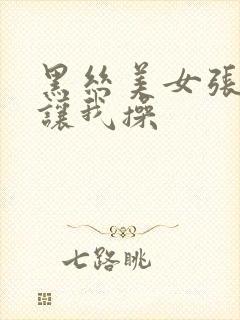 黑丝美女張
讓我操
七路眺